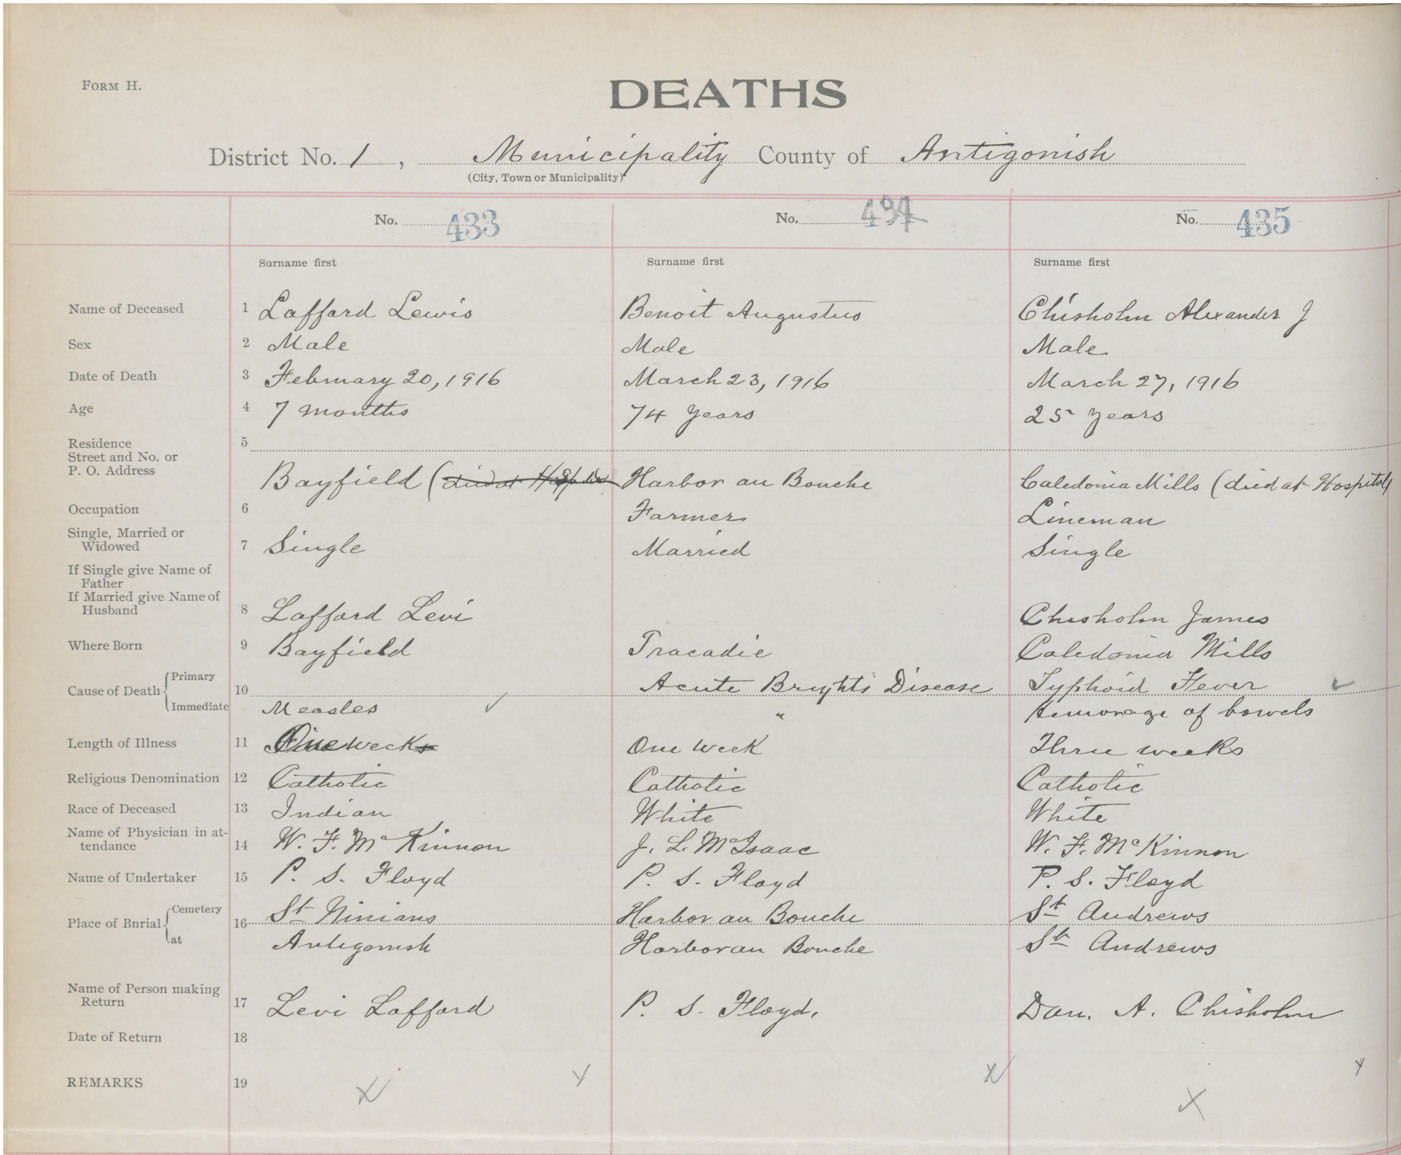 FORM H.
DEATHS
District No. 1, Municipality County of Antigonish
(City, Town or Municipality)
No. 433 No. 434 No. 435
Surname first Surname first Surname first
Name of Deceased 1 Lafford Lewis Benoit Augustus Chisholm Alexander J
Sex 2 Male Male Male
Date of Death 3 February 20, 1916 March 23, 1916 March 27, 1916
Age 4 7 months 74 years 25 years
Residence 5
Street and No. or
P. O. Address Bayfield (died at Harbor au Bouche Caledonia Mills (died at Hospital)
Occupation 6 Farmer Lineman
Single, Married or
Widowed 7 Single Married Single
If Single give Name of
Father
If Married give Name of
Husband 8 Lafford Levi Chisholm James
Where Born 9 Bayfield Tracadie Caledonia Mills
Cause of Death Primary 10 Acute Brights Disease Typhoid Fever
Immediate Measles " Hemorage of bowels
Length of Illness 11 One week One week Three weeks
Religious Denomination 12 Catholic Catholic Catholic
Race of Deceased 13 Indian White White
Name of Physician in at-
tendance 14 W. F. McKinnon J. L. McIsaac W. F. McKinnon
Name of Undertaker 15 P. S. Floyd P. S. Floyd P. S. Floyd
Place of Burial Cemetery 16 St Ninians Harbor au Bouche St Andrews
at Antigonish Harbor au Bouche St Andrews
Name of Person making
Return 17 Levi Lafford P. S. Floyd. Dan. A. Chisholm
Date of Return 18
REMARKS 19